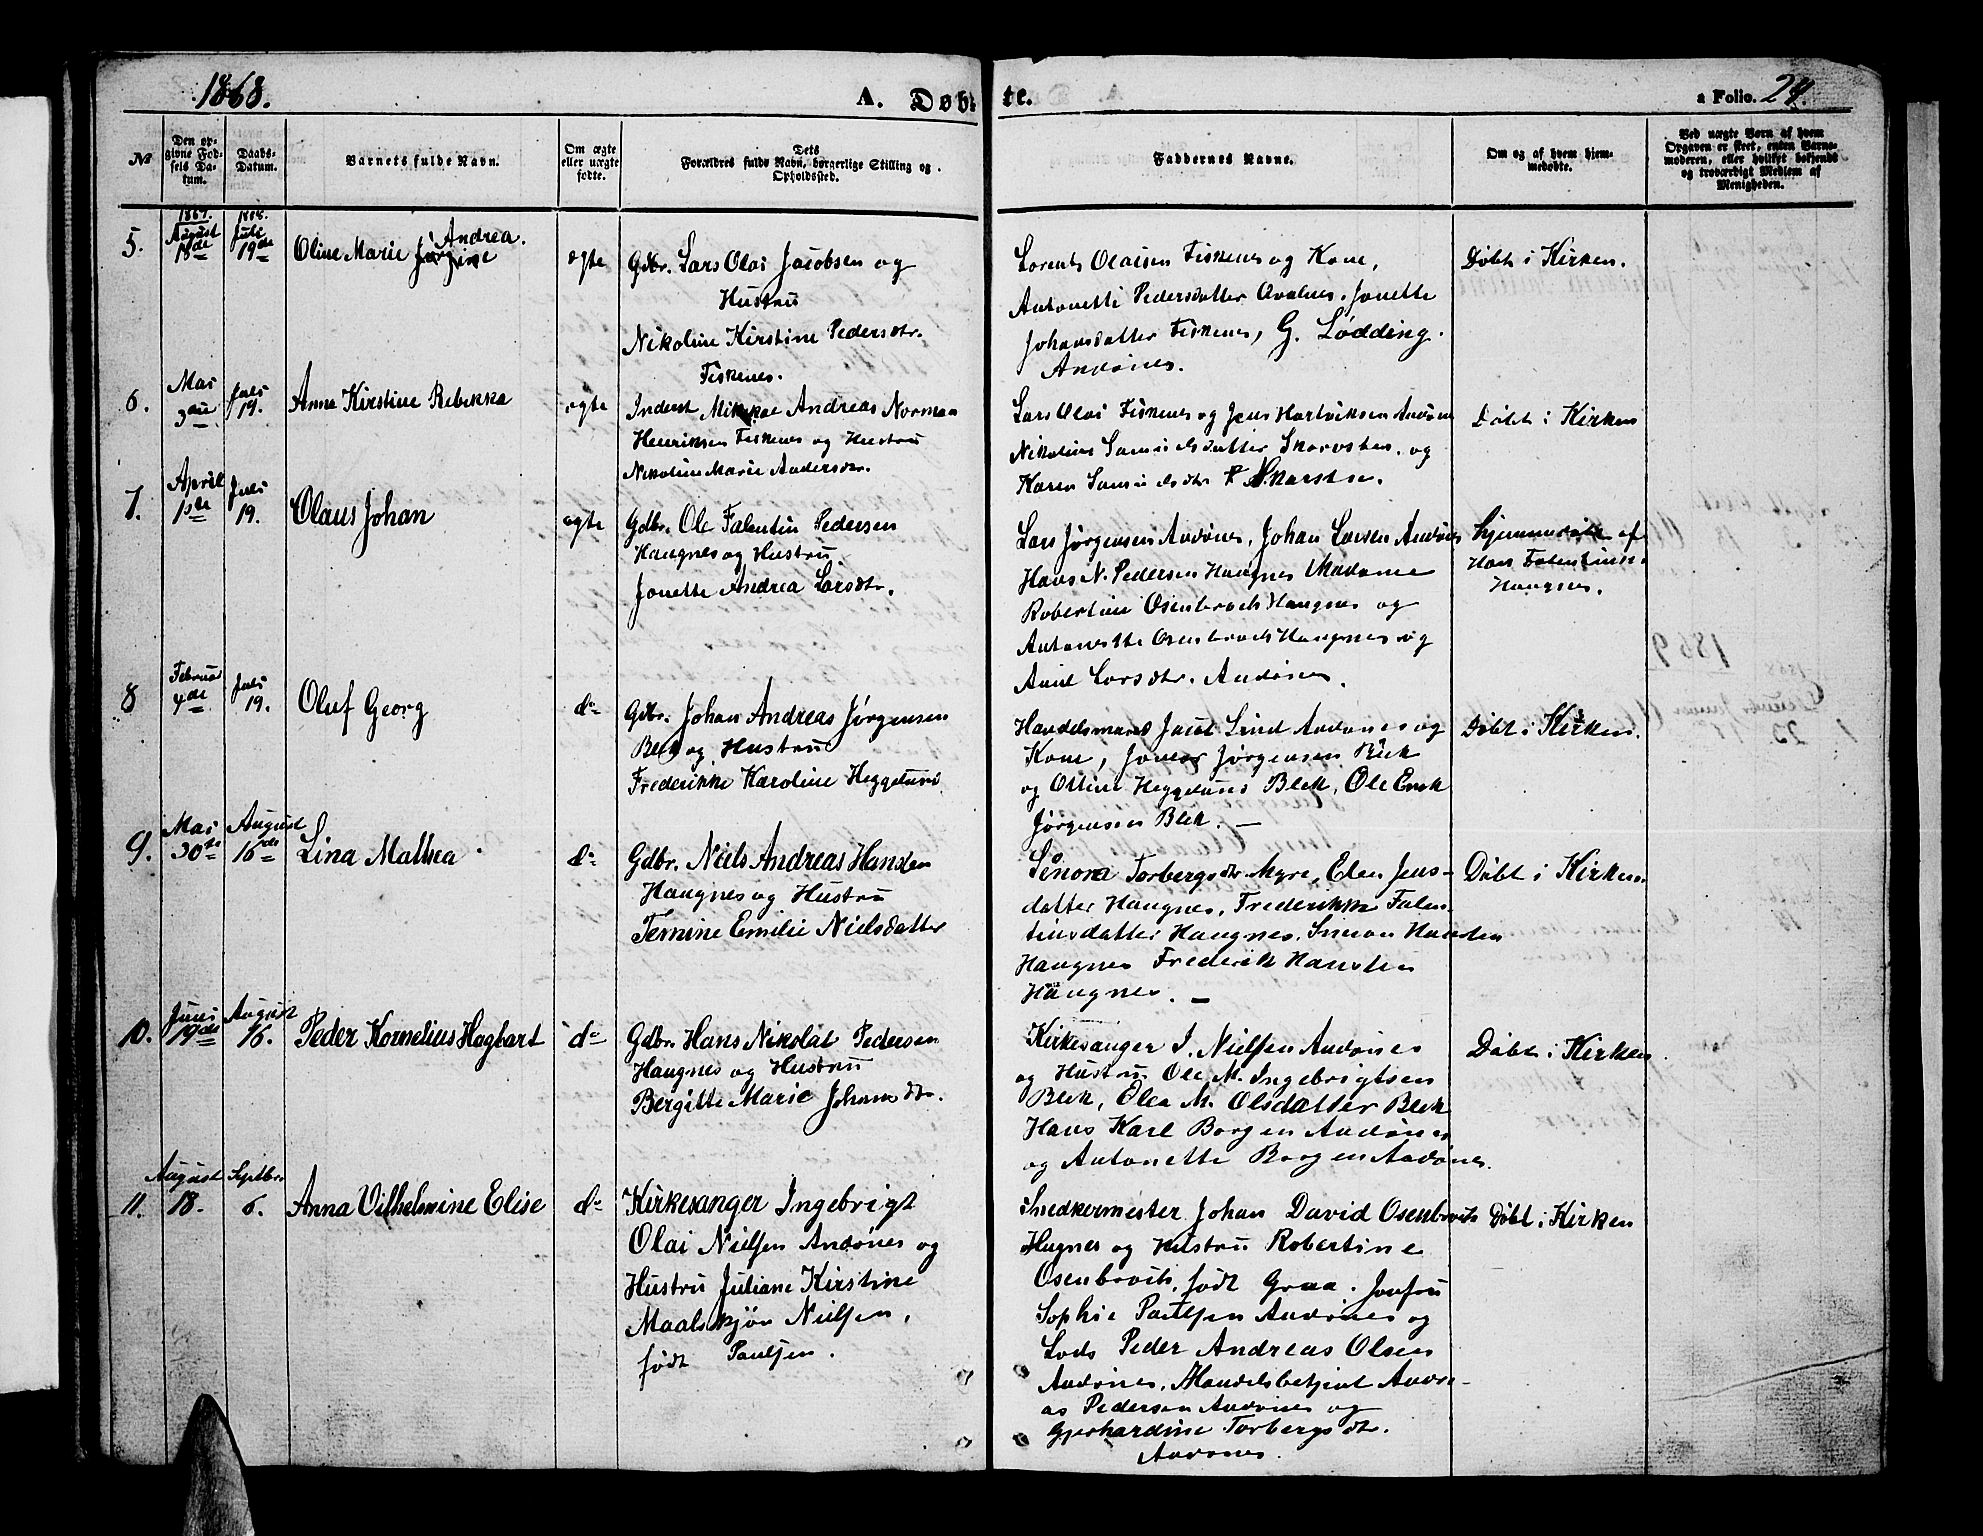 1868.
A. Døbte.
a Folio. 24.
№
Den opgivne Fødsels Datum.
Daabs-Datum.
Barnets fulde Navn.
Om ægte eller uægte fødte.
Dets Forældres fulde Navn, borgerlige Stilling og Opholdssted.
Faddernes Navne.
Om og af hvem hjemmedøbte.
Ved uægte Børn af hvem Opgaven er skeet, enten Barnemoderen, eller hvilket bekjendt og troværdigt Medlem af Menigheden.
5.
1867.
August
18de
1868.
Juli
19de
Oline Marie Jørgine Andrea.
ægte
Gdbr. Lars Olai Jacobsen og
Hustru
Nikoline Kirstine Pedersdtr.
Fiskenes.
Lorents Olaisen Fiskenes og Kone,
Antonette Pedersdatter Avalnes, Jonette
Johansdatter Fiskenes, G. Lødding.
Andønes.
Døbt i Kirken.
6.
Mai
3die
Juli
19.
Anne Kirstine Rebekka
ægte
Inderst Mikkal Andreas Norman
Henriksen Fiskenes og Hustru
Nikoline Marie Andersdtr.
Lars Olai Fiskenes og Jens Hartviksen Andønes
Nikoline Samuelsdatter Skarvsten, og
Karen Samuelsdtr
Døbt i Kirken
7.
April
1ste
Juli
19.
Olaus Johan
ægte
Gdbr. Ole Falentin Pedersen
Haugnes og Hustru
Jonette Andrea Larsdtr.
Lars Jørgensen Andønes, Johan Larsen Andønes
Hans N. Pedersen Haugnes Madame
Robertine Osenbroch Haugnes og
Antonette Osenbroch Haugnes og
Anne Larsdtr. Andønes.
Hjemmedøbt af
Hans Falentinsen
Haugnes.
8
Februar
4de
Juli
19.
Oluf Georg
do
Gdbr. Johan Andreas Jørgensen
Blek og Hustru
Frederikke Karoline Heggelund.
Handelsmand Jacob Lind Andønes og
Kone, Jørgensen Blek
og Ottine Heggelund Blek, Ole Enok
Jørgensen Blek. —
Døbt i Kirken.
9.
Mai
30te
August
16de
Lina Mathea
do
Gdbr. Niels Andreas Hansen
Haugnes og Hustru
Ternine Emilie Nielsdatter
Senora Torbergsdtr Myre, Elen Jens-
datter Haugnes, Frederikke Falen-
tinsdatter Haugnes, Simon Hansten
Haugnes Frederik Hansten
Haugnes. —
Døbt i Kirken.
10.
Juni
19de
August
16.
Peder Kornelius Hagbart
do
Gdbr. Hans Nikolai Pedersen
Haugnes og Hustru
Bergitte Marie Johansdtr.
Kirkesanger I. Nielsen Andønes
og Hustru Ole M. Ingebrigtsen
Blek, Olea M. Olsdatter Blek
Hans Karl Borgen Andønes
og Antonette Borgen Andønes.
Døbt i Kirken
11.
August
18.
Septbr
6.
Anna Vilhelmine Elise
do
Kirkesanger Ingebrigt
Olai Nielsen Andønes og
Hustru Juliane Kirstine
Maalskjøn Nielsen,
født Paulsen.
Snedkermester Johan David Osenbroch
Hugnes og Hustru Robertine
Osenbroch, født Graa. Jomfru
Sophie Paulsen Andønes og
Lods Peder Andreas Olsen
Andønes, Handelsbetjent Andre-
as Pedersen Andønes og
Gjerhardine Torbergsdtr.
Andønes.
Døbt i Kirken